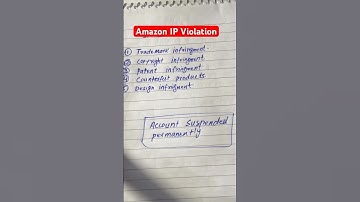 Amazon IP Violation
① Trade Mark infringment.
② Copyright infringment
③ Patent infringment
④ Counterfeit products
⑤ Design infrigment
Account Suspended
permanently